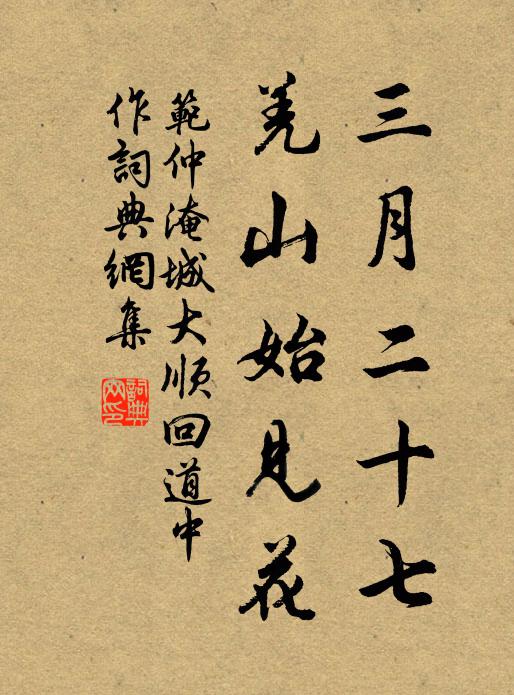 三月二十七
羌山始見花
範仲淹城大順回道中
作詞典網集
詞典